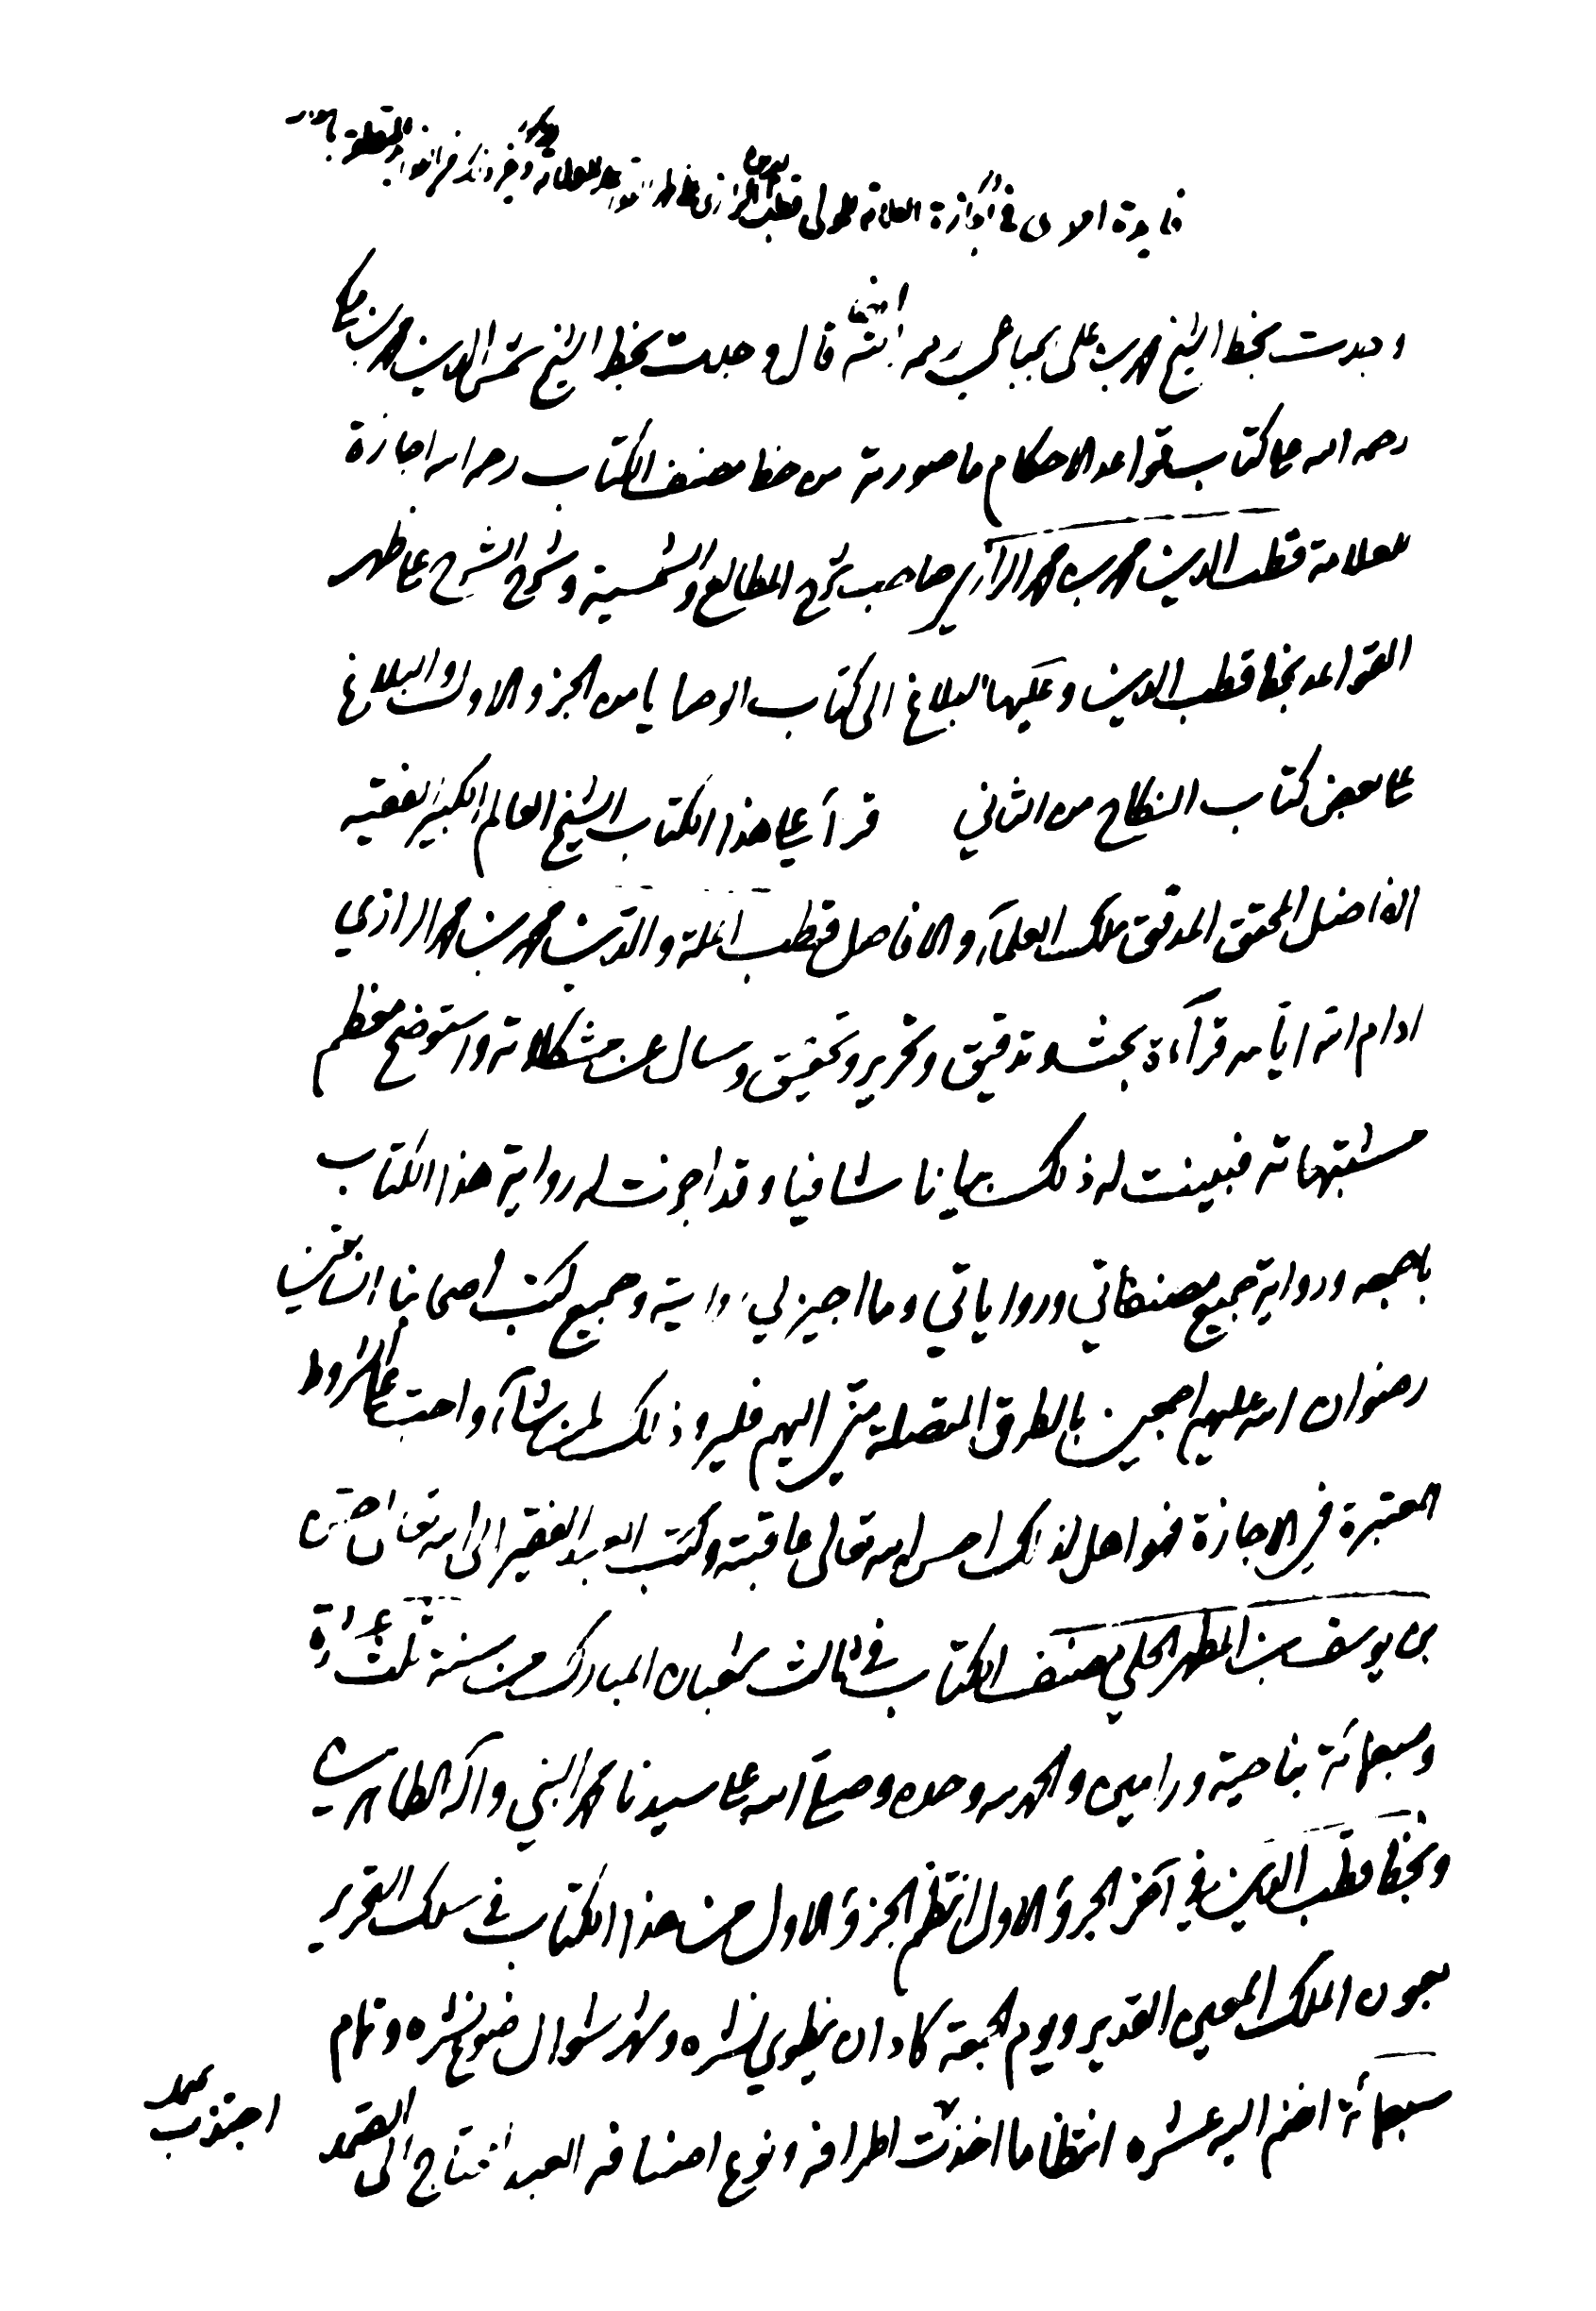 فايدة اخرى في اجازة العلامة للمولى قطب الدين الرازي على ظهر القواعد للعلامة
وجدت بخط الشيخ محمد بن علي الجباعي رحمه الله ايضا قال وجدت بخط الشيخ شمس الدين محمد بن مكي
رحمه الله على كتاب قواعد الاحكام ما صورته من خط مصنف الكتاب رحمه الله اجازة
للعلامة قطب الدين محمد بن محمد الرازي صاحب شرح المطالع والشمسية وشرح الشرح على ظهر
القواعد بخط قطب الدين وعليها البلاغ الى كتاب الوصايا من الجزو الاول والبلاغ
على بعض كتاب النكاح من الثاني قرأ علي هذا الكتاب الشيخ العالم الكبير الفقيه
الفاضل المحقق المدقق ملك العلمآء والافاضل قطب الملة والدين محمد بن محمد الرازي
ادام الله ايامه قرآءة بحث وتدقيق وتحرير وتحقيق وسال عن مشكلاته واستوضح معظم
مشتبهاته فبينت له ذلك بيانا شافيا وقد اجزت له رواية هذا الكتاب
باجمعه ورواية جميع مصنفاتي ورواياتي وما اجيز لي روايته وجميع كتب اصحابنا السابقين
رضوان الله عليهم اجمعين بالطرق المتصلة مني اليهم فليرو ذلك لمن شآء واحب على الشروط
المعتبرة في الاجازة فهو اهل لذلك احسن الله تعالى عاقبته وكتب العبد الفقير الى الله تعالى حسن
بن يوسف بن المطهر الحلي مصنف الكتاب في ثالث شعبان المبارك من سنة ثلث عشرة
وسبعمائة بناحية ورامين والحمد لله وحده وصلى الله على سيدنا محمد النبي وآله الطاهرين
وبخط قطب الدين في آخر الجزؤ الاول انتظم الجزؤ الاول من هذا الكتاب في سلك التحرير
بعون الملك المعين القدير ويوم الجمعة كاد ان ينطوي نشره وشهر شوال ضوع نشره وتمام
سبعمائة انضم اليه عشره انتظاما اخذت اطرافه ونوع اصنافه العبد المحتاج الى الصمد